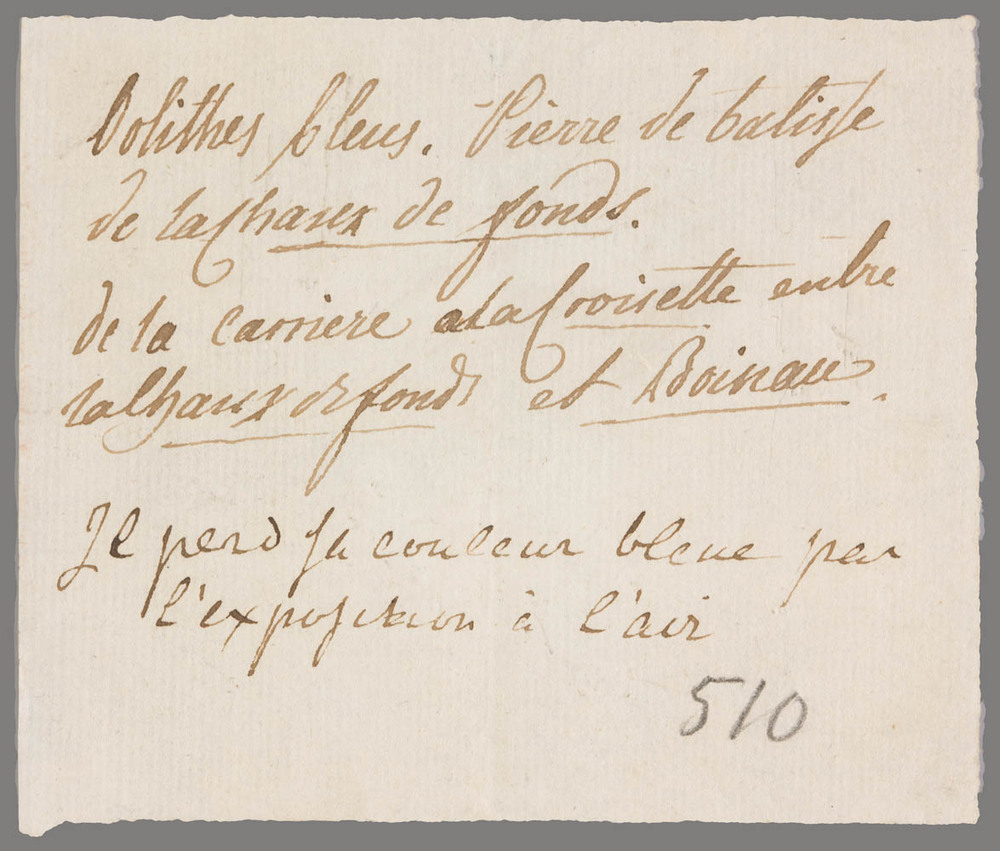 Oolithes bleus. Pierre de batisse
de la Chaux de fonds.
de la carriere a la Croisette entre
la Chaux de fonds et Boinau.
Il perd sa couleur bleue par
l'exposition à l'air
510